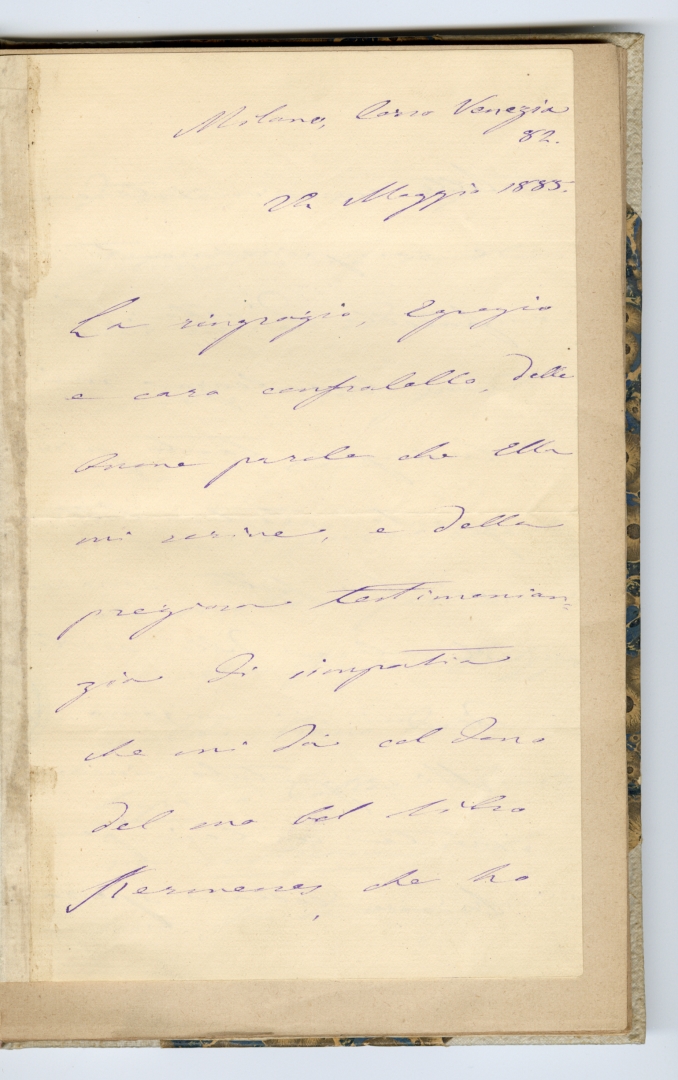 Milano, Corso Venezia
82.
22 Maggio 1885.
La ringrazio, Egregio
e caro confratello, delle
buone parole che Ella
mi scrive, e della
preziosa testimonian=
zia di simpatia
che mi dà col dono
del suo bel libro
Kermesses, che ho